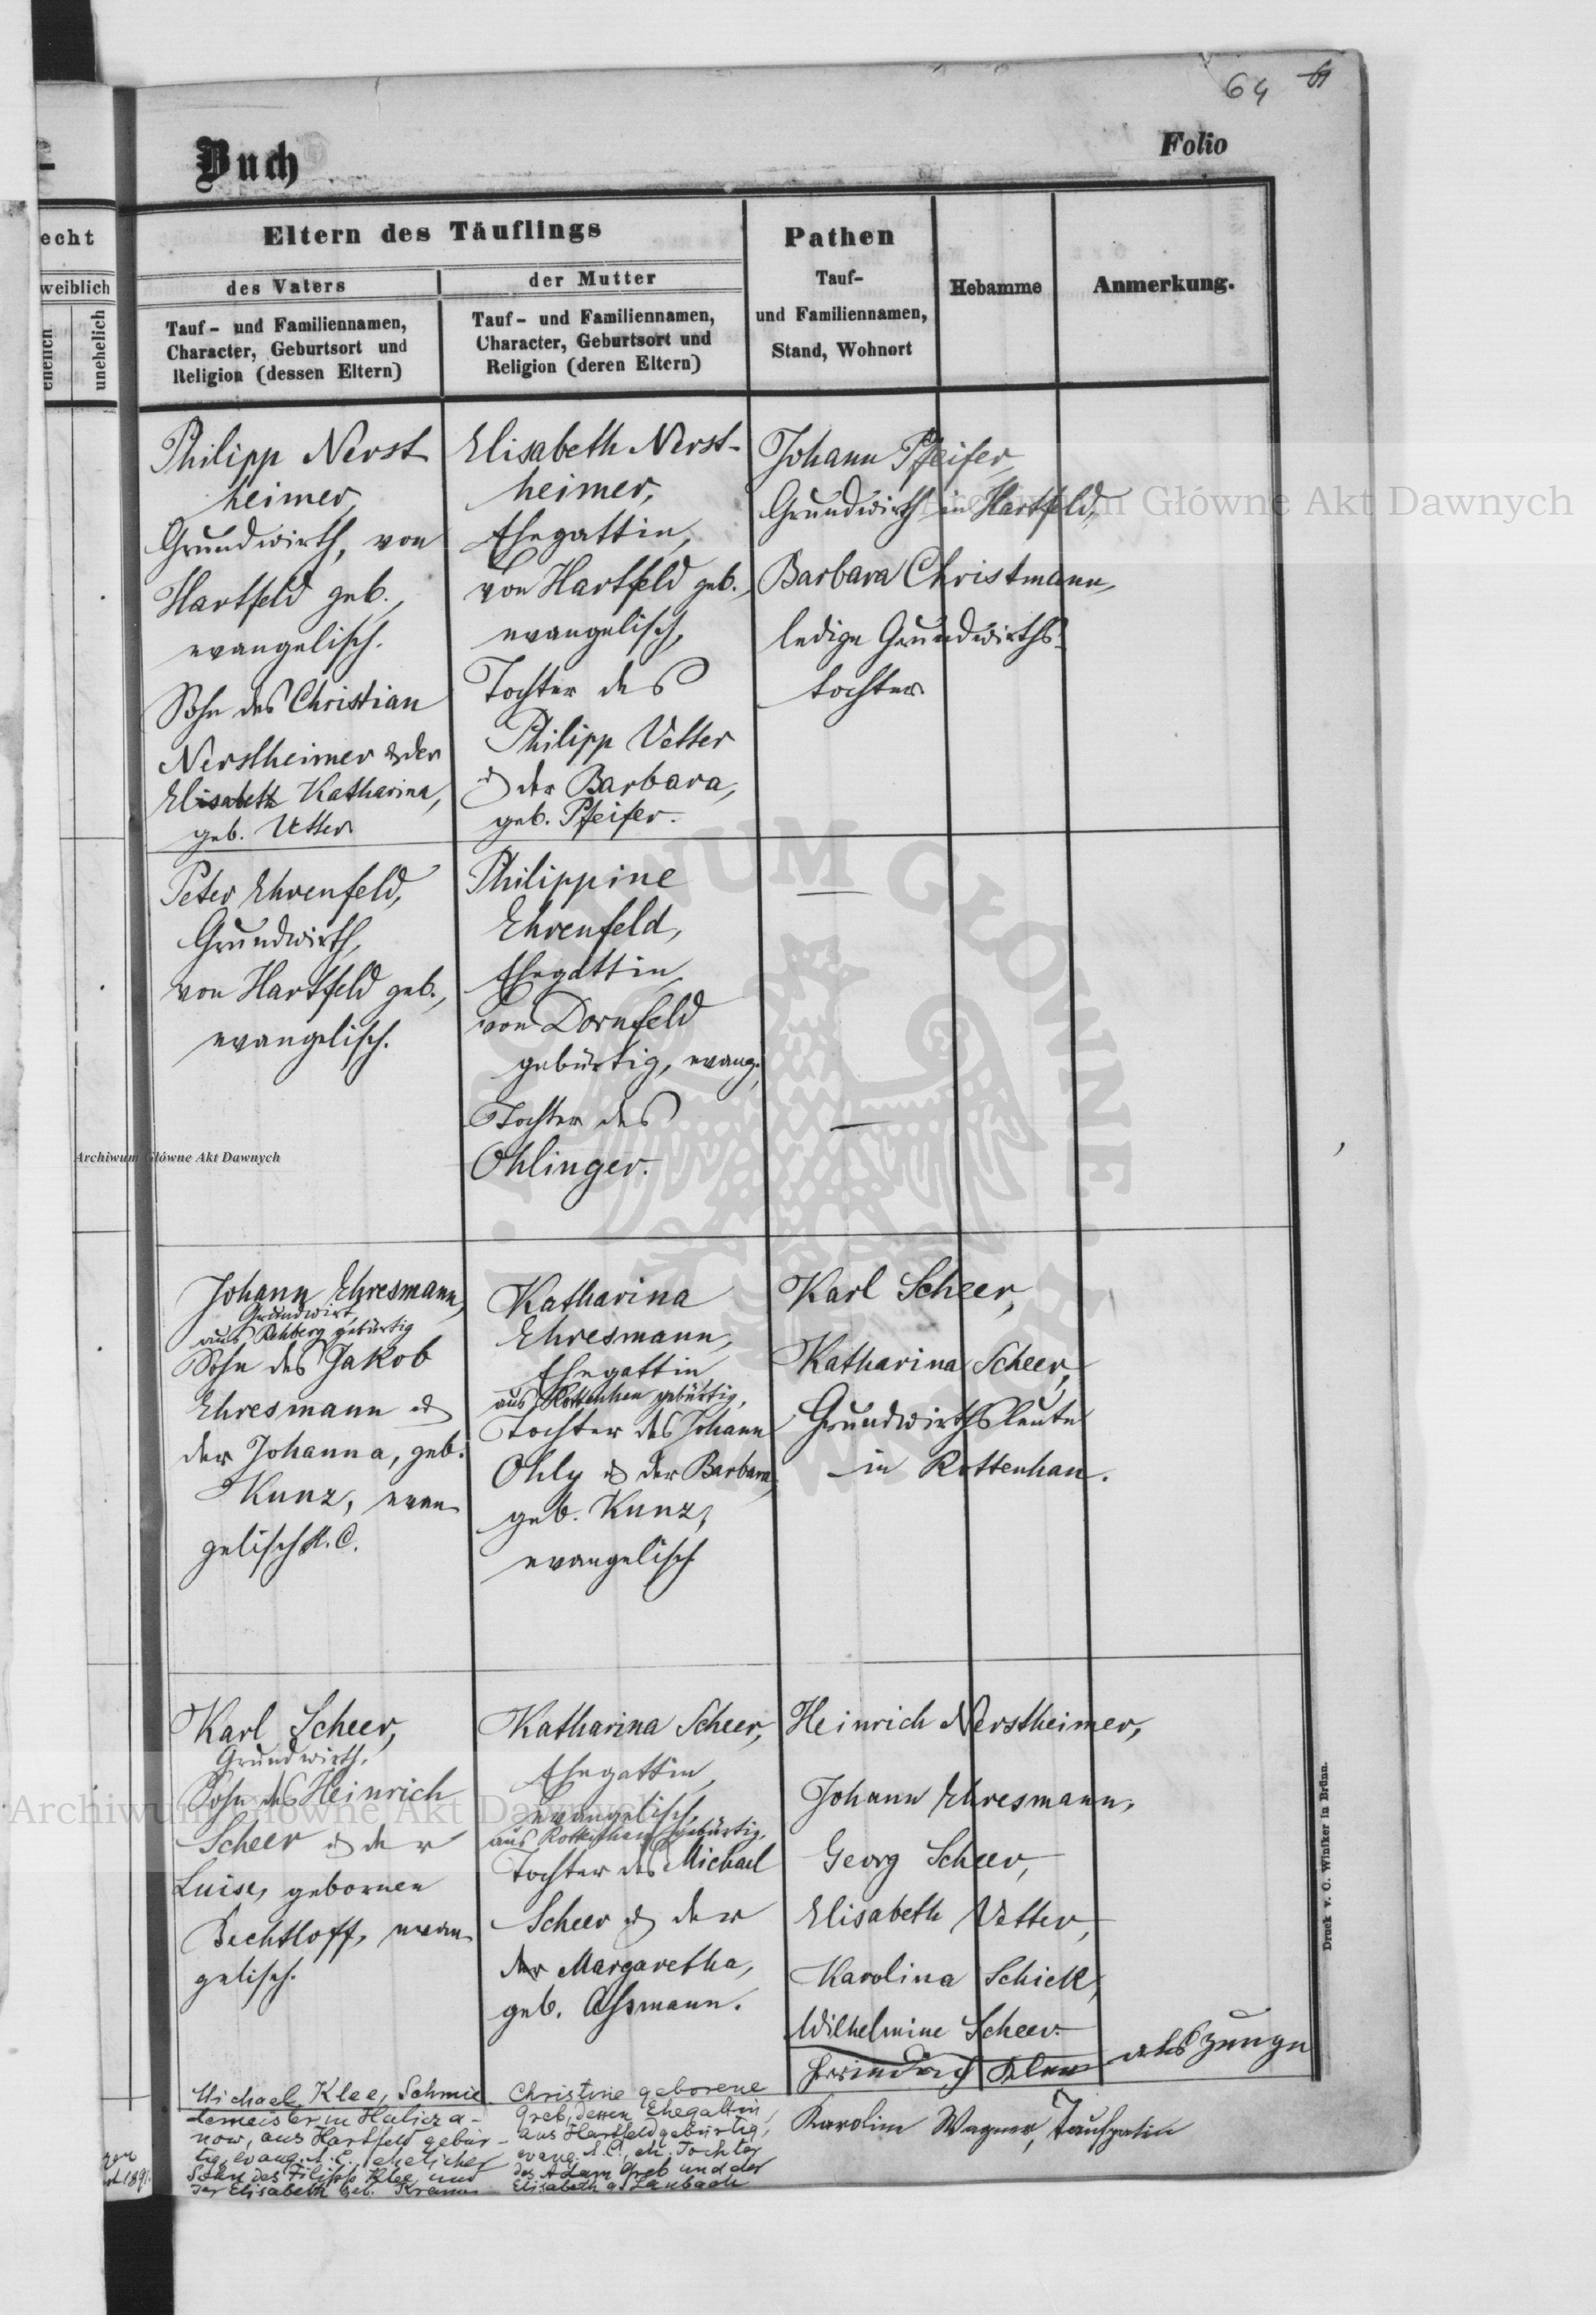 64
Buch
Folio
echt
weiblich
ehelich
unehelich
Eltern des Täuflings
des Vaters
der Mutter
Tauf- und Familiennamen,
Character, Geburtsort und
Religion (dessen Eltern)
Tauf- und Familiennamen,
Character, Geburtsort und
Religion (deren Eltern)
Pathen
Tauf-
und Familiennamen,
Stand, Wohnort
Hebamme
Anmerkung.
Philipp Nerst-
heimer,
Grundwirth, von
Hartfeld geb.,
evangelisch.
Sohn des Christian
Nerstheimer & der
Elisabeth Katharina,
geb. Vetter
Elisabeth Nerst-
heimer,
Ehegattin,
von Hartfeld geb.,
evangelisch,
Tochter des
Philipp Vetter
& der Barbara,
geb. Pfeifer.
Johann Pfeifer,
Grundwirth in Hartfeld,
Barbara Christmann,
ledige Grundwirths-
tochter
Peter Ehrenfeld,
Grundwirth,
von Hartfeld geb.,
evangelisch.
Philippine
Ehrenfeld,
Ehegattin,
von Dornfeld
gebürtig, evang.,
Tochter des
Ohlinger.
—
—
Johann Ehresmann,
Grundwirt,
aus Rehberg gebürtig
Sohn des Jakob
Ehresmann &
der Johanna, geb.
Kunz, evan-
gelisch A.C.
Katharina
Ehresmann,
Ehegattin,
aus Rottenhan gebürtig,
Tochter des Johann
Ohly & der Barbara,
geb. Kunz,
evangelisch
Karl Scheer,
Katharina Scheer,
Grundwirthsleute
in Rottenhan.
Karl Scheer,
Grundwirth,
Sohn des Heinrich
Scheer & der
Luise, gebornen
Bechtloff, evan-
gelisch.
Katharina Scheer,
Ehegattin,
evangelisch,
aus Rottenhan gebürtig,
Tochter des Michael
Scheer & der
der Margaretha,
geb. Aßmann.
Heinrich Nerstheimer,
Johann Ehresmann,
Georg Scheer,
Elisabeth Vetter,
Karolina Schick,
Wilhelmine Scheer.
als Zeuge
Michael Klee, Schmie-
demeister in Halicza-
now, aus Hartfeld gebür-
tig, evang. A.C., ehelicher
Sohn des Filipp Klee und
der Elisabeth geb. Kramer
Christine geborene
Greb, dessen Ehegattin,
aus Hartfeld gebürtig,
evang. A.C., eh. Tochter
des Adam Greb und der
Elisabeth g. Laubach
Karolin Wagner, Taufpatin
Druck v. C. Winiker in Brünn.
Archiwum Główne Akt Dawnych
Archiwum Główne Akt Dawnych
Archiwum Główne Akt Dawnych